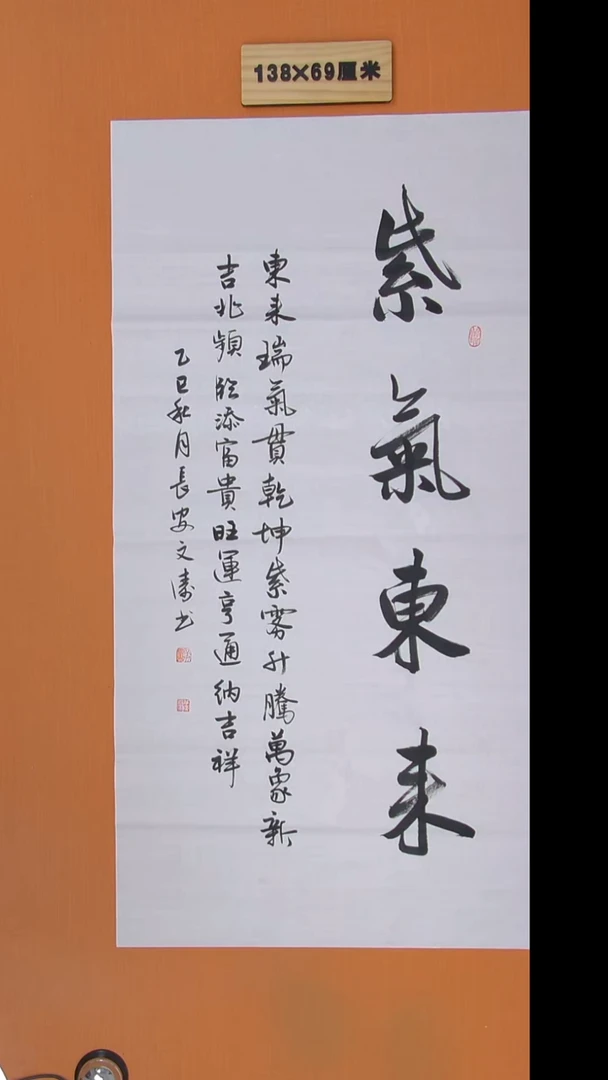 138×69厘米
紫氣東来
東来瑞氣貫乾坤紫雾升騰萬象新
吉兆頻臨添富貴旺運亨通納吉祥
乙巳秋月長安文涛书